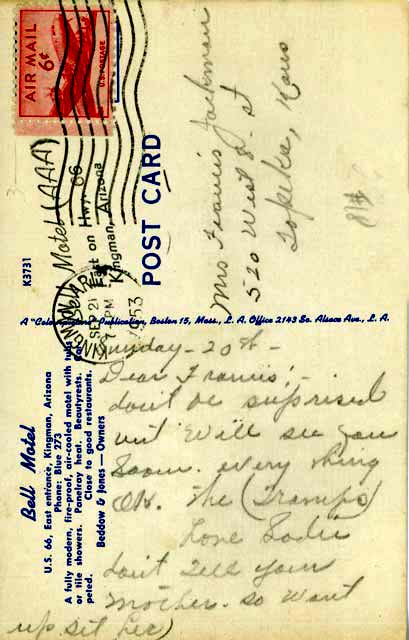 AIR MAIL
6¢
U.S. POSTAGE
KINGMAN
SEP 21
PM
1953
ARIZ.
Motel (AAA)
East on Hwy. 66
Kingman, Arizona
POST CARD
K3731
Mrs Francis Jackman
520 West 2 St
Topeka, Kans
A "Colourpicture" Publication, Boston 15, Mass., L. A. Office 2143 So. Alsace Ave., L. A.
Bell Motel
U.S. 66, East entrance, Kingman, Arizona
Phone: Blue 273
A fully modern, fire-proof, air-cooled motel with tub
or tile showers. Panelray heat. Beautyrests. Car-
peted. Close to good restaurants.
Beddow & Jones — Owners
Sunday - 20th -
Dear Francis! -
don't be suprised
but will see you
soon. every thing
OK. The (Tramps)
Love Sadie
don't tell your
mother. so wont
up set her)